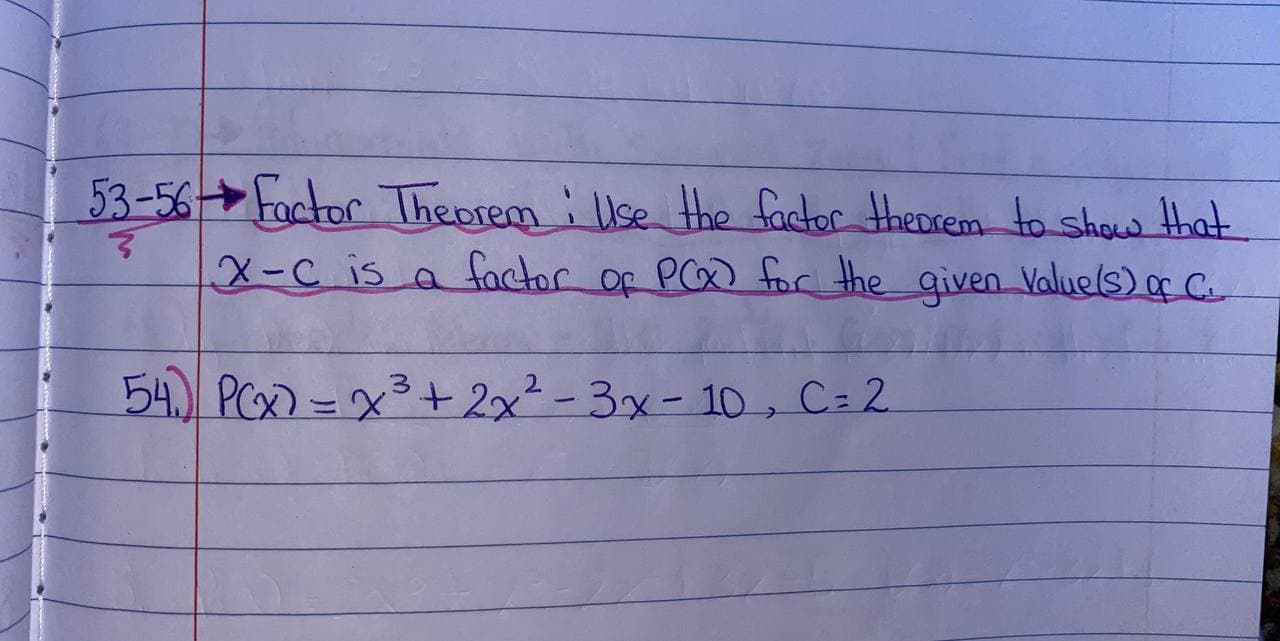 53-56 → Factor Theorem : Use the factor theorem to show that
x-c is a factor of P(x) for the given Value(s) of C.
54.) P(x) = x³ + 2x² - 3x - 10 , C = 2